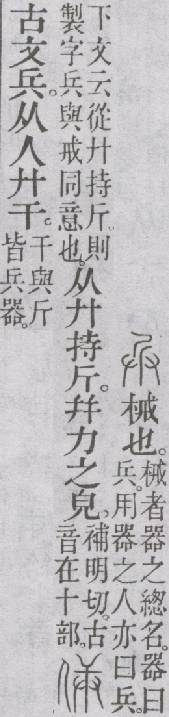 械也。械者器之總名。器曰兵。用器之人亦曰兵。
下文云從廾持斤。則製字兵與戒同意也。从廾持斤。幷力之皃。補明切。古音在十部。
古文兵。从人廾干。干與斤皆兵器。